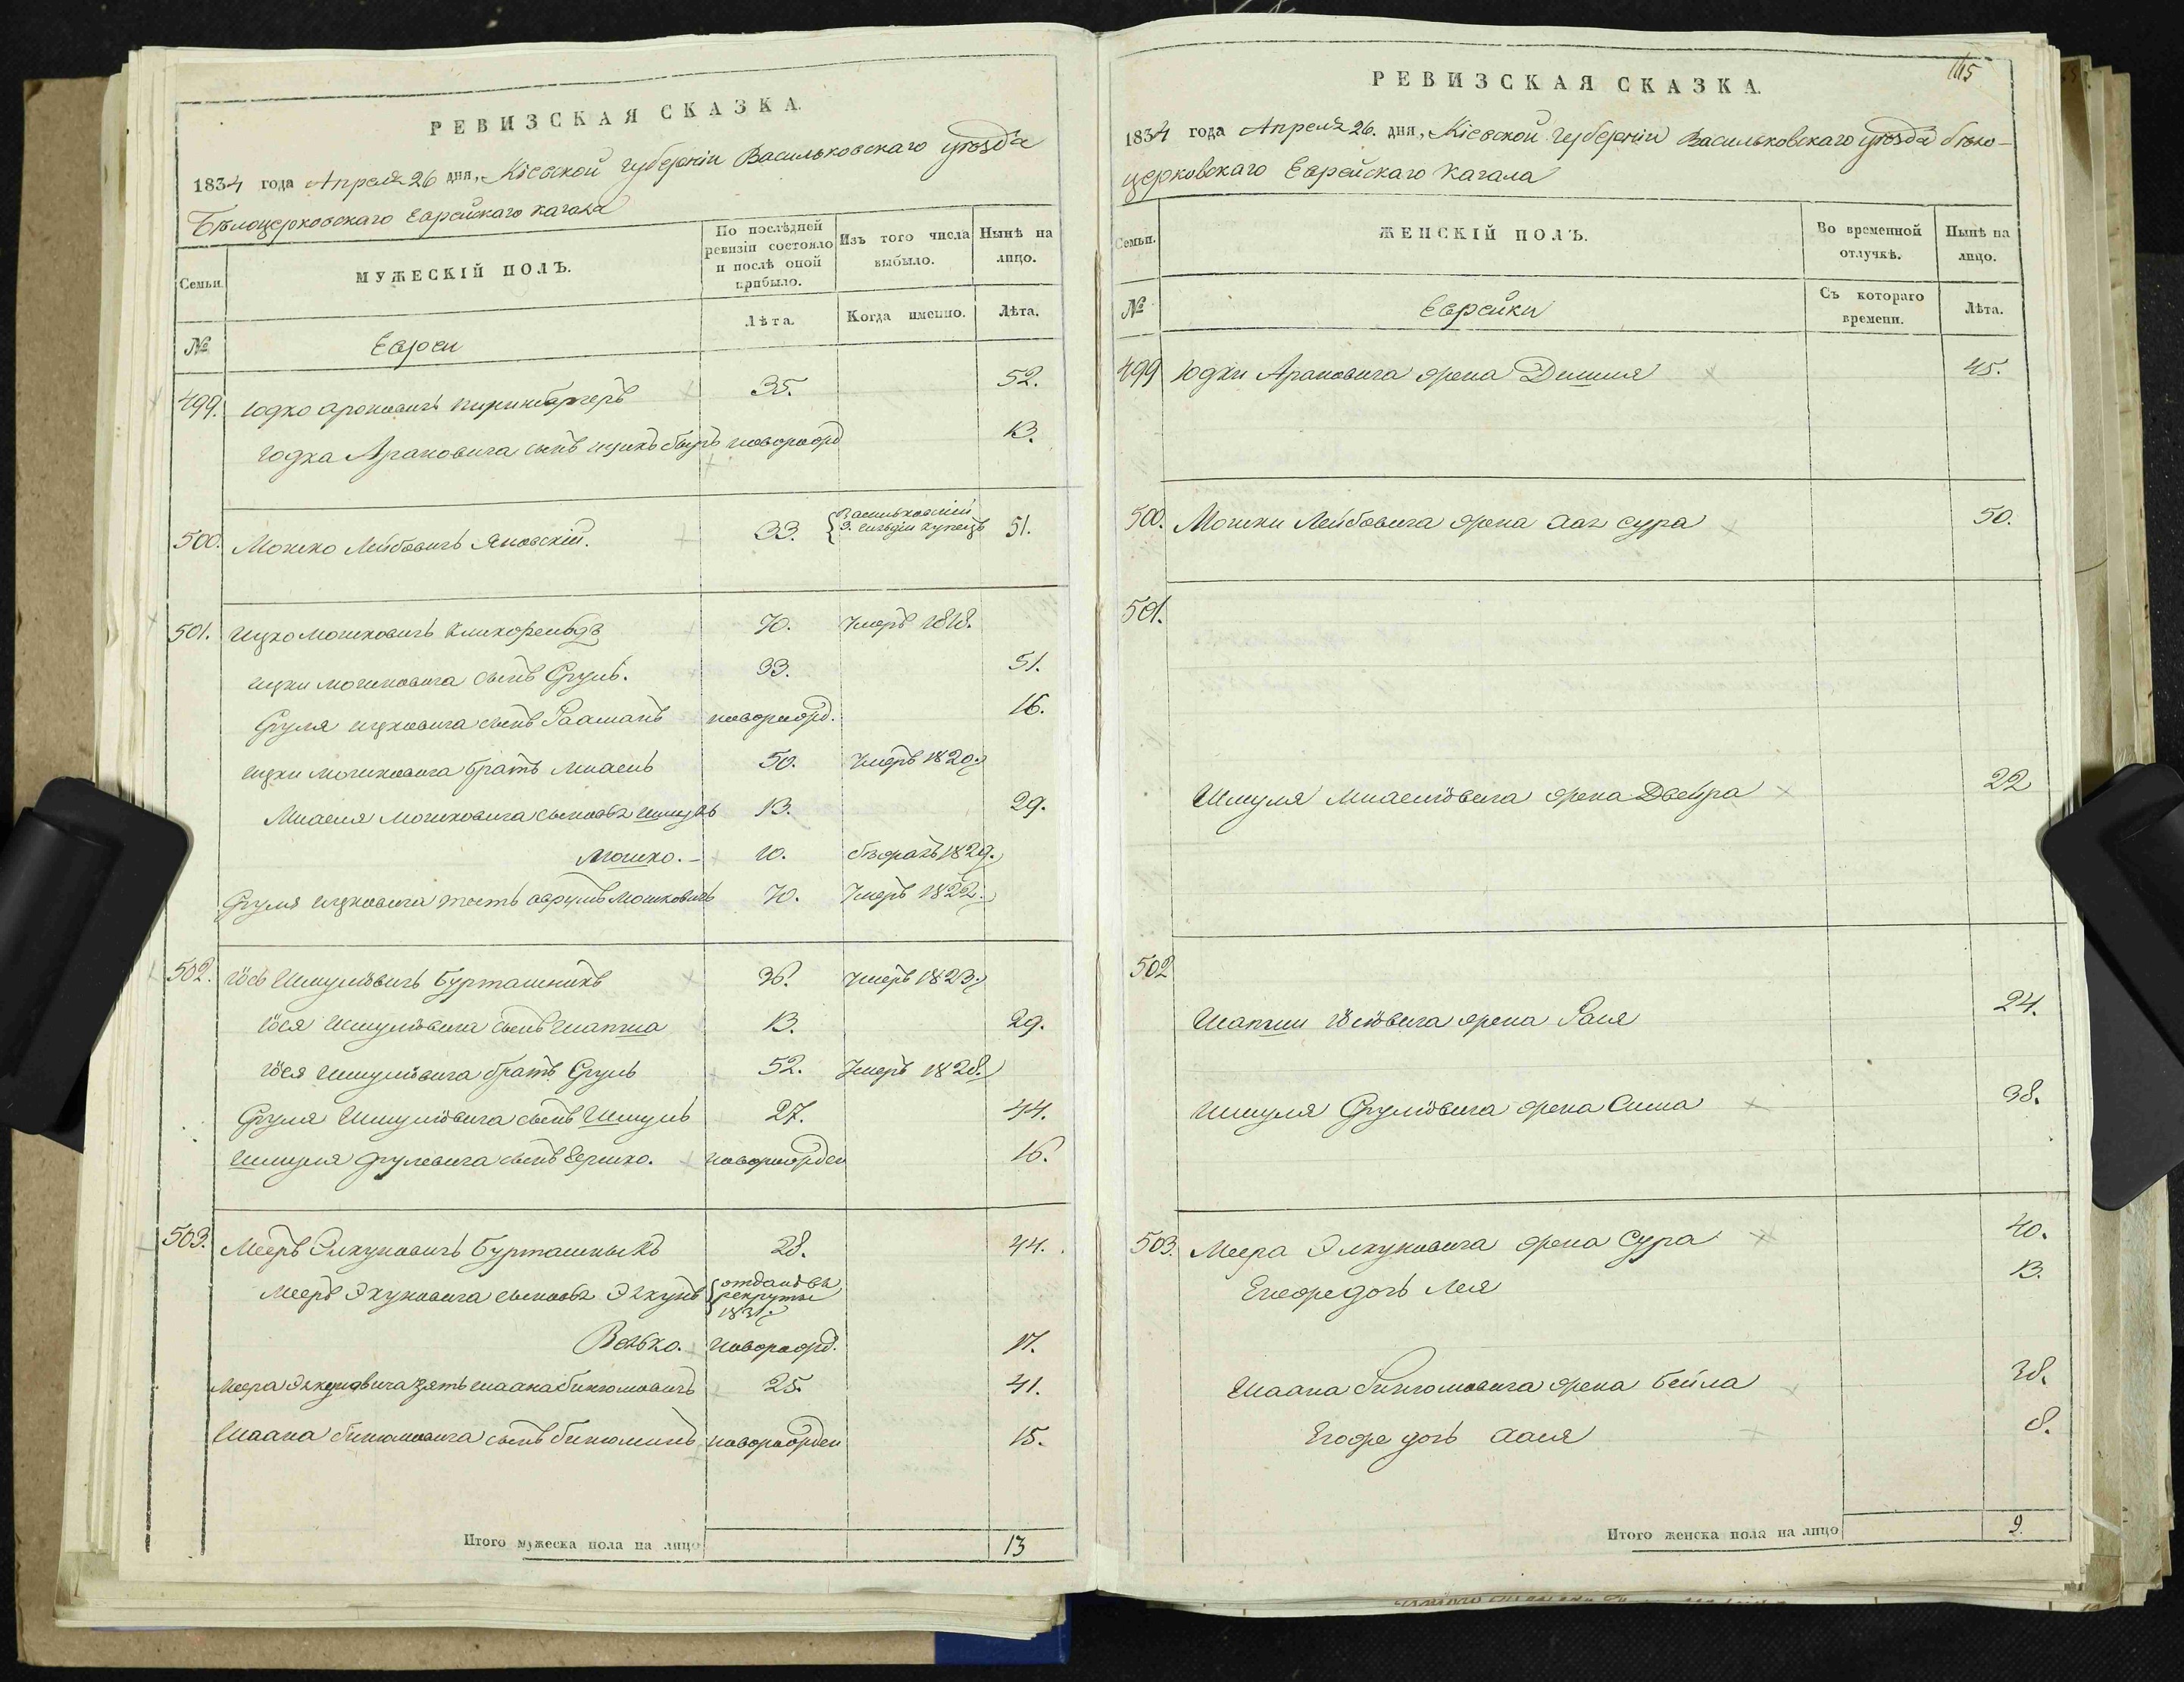 РЕВИЗСКАЯ СКАЗКА.
1834 года Апреля 26 дня, Кіевской Губерніи Васильковскаго уѣзда
Бѣлоцерковскаго Еврейскаго кагала
Семьи.
МУЖЕСКІЙ ПОЛЪ.
По послѣдней ревизіи состояло и послѣ оной прибыло.
Изъ того числа выбыло.
Нынѣ на лицо.
№
Евреи
Лѣта.
Когда именно.
Лѣта.
499. Юдко Ароновичъ 35. 52.
Юдка Ароновича сынъ новорожд 13.
500. Мошко Лейбовичъ Яновскій. 33. Васильковскій 3. гильдіи купецъ 51.
501. Ицко Мошковичъ 70. Умеръ 1818.
Ицки Мошковича сынъ Сруль. 33. 51.
Сруля Ицковича сынъ новорожд. 16.
Ицки Мошковича братъ 50. Умеръ 1820.
Мошковича сыновья Шмуль 13. 29.
Мошко. 10. бѣжалъ 1829.
Сруля Ицковича тесть Мошковичъ 70. Умеръ 1822.
502. Іось Шмулёвичъ Бурташникъ 36. Умеръ 1823.
Іося Шмулёвича сынъ Шапша 13. 29.
Іося Шмулёвича братъ Сруль 52. Умеръ 1828.
Сруля Шмулёвича сынъ Шмуль 27. 44.
Шмуля Срулевича сынъ Гершко. новорожден 16.
503. Мееръ Элкуновичъ Бурташныкъ 28. 44.
Мееръ Элкуновича сыновья Элкунъ отданъ въ рекруты 1831.
Волько. новорожд. 17.
Меера Элкуновича зять Шаана Бинюмовичъ 25. 41.
Шаана Бинюмовича сынъ Бинюминъ новорожден 15.
Итого мужеска пола на лицо 13
115
РЕВИЗСКАЯ СКАЗКА.
1834 года Апреля 26. дня, Кіевской Губерніи Васильковскаго уѣзда бѣло-
церковскаго Еврейскаго Кагала
Семьи.
ЖЕНСКІЙ ПОЛЪ.
Во временной отлучкѣ.
Нынѣ на лицо.
№
Еврейки
Съ котораго времени.
Лѣта.
499 Юдки Ароновича жена 45.
500. Мошки Лейбовича жена Сура 50.
501.
Шмуля жена Двейра 22
502
Шапши Іосіовича жена Рася 24.
Шмуля Срулёвича жена Сима 38.
503. Меера Элкуновича жена Сура 40.
Егоже дочь Лея 13.
Шаана Бинюмовича жена Бейла 38.
Егоже дочь Хася 8.
Итого женска пола на лицо 9.